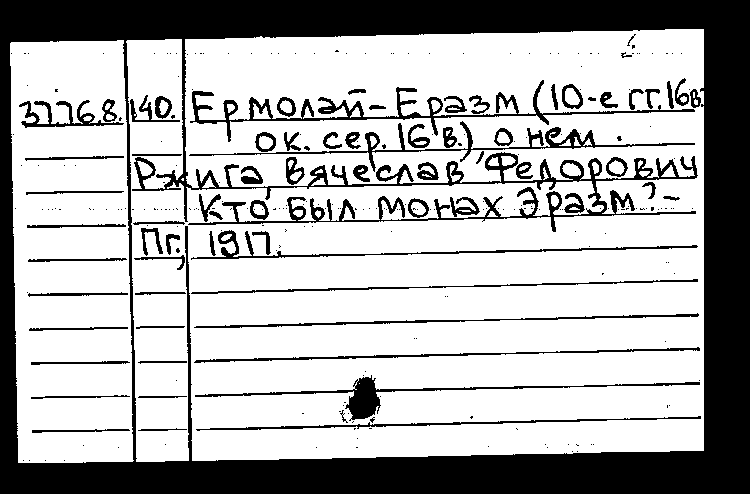 37768. 140. Ермолай-Еразм (10-е гг. 16в.
ок. сер. 16 в.), о нем.
Ржига, Вячеслав Федорович
Кто был монах Эразм? -
Пг., 1917.